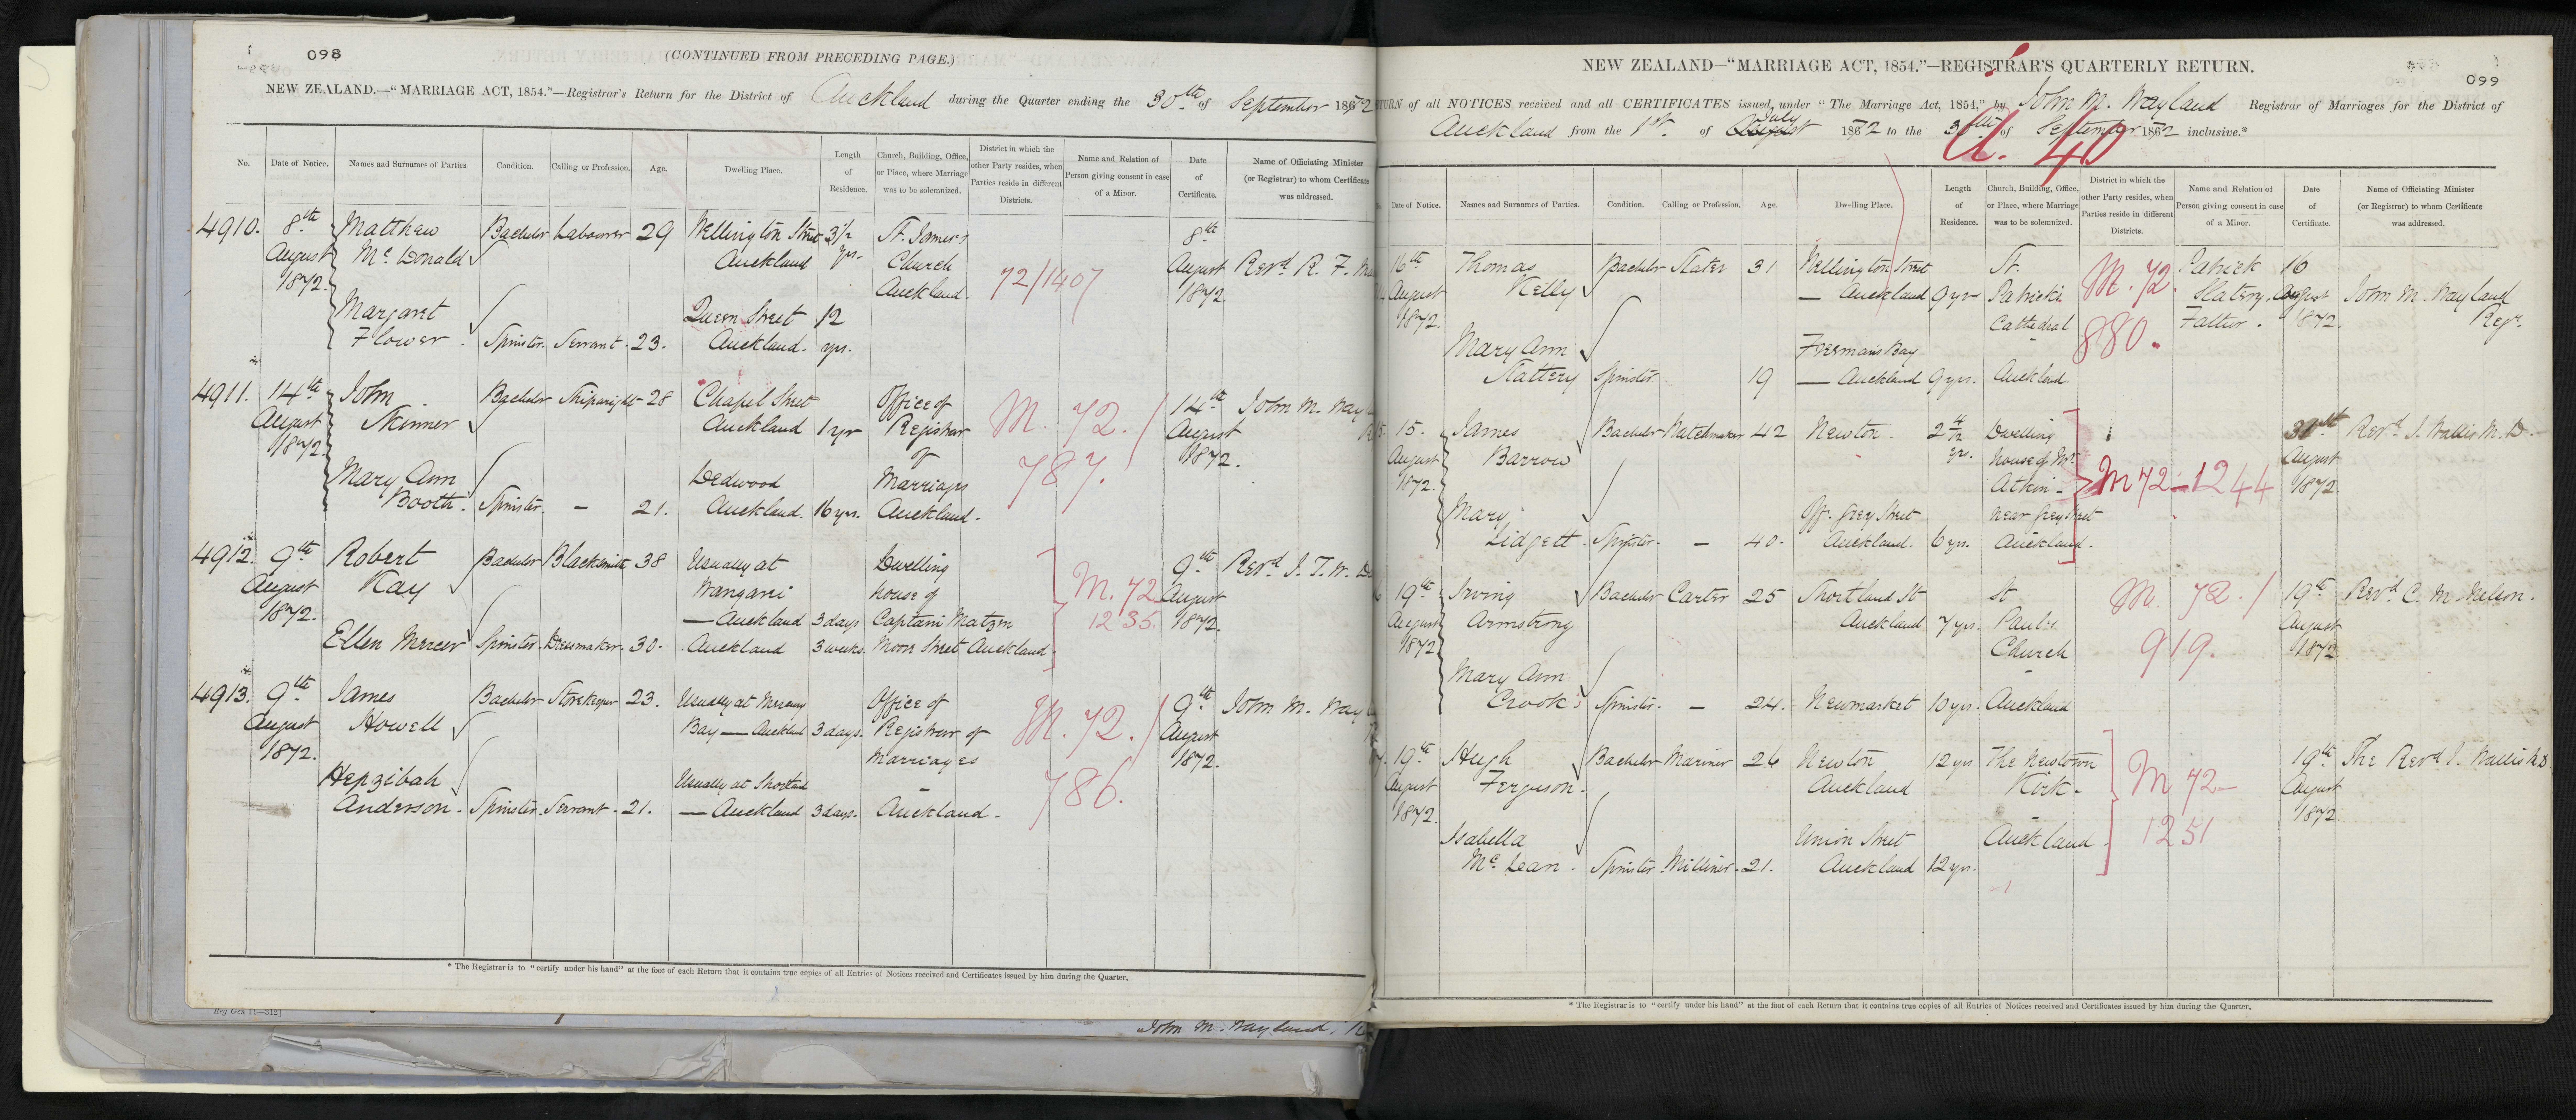 098
(CONTINUED FROM PRECEDING PAGE.)
NEW ZEALAND.—"MARRIAGE ACT, 1854."—Registrar's Return for the District of Auckland during the Quarter ending the 30th of September 1872
No.
Date of Notice.
Names and Surnames of Parties.
Condition.
Calling or Profession.
Age.
Dwelling Place.
Length of Residence.
Church, Building, Office, or Place, where Marriage was to be solemnized.
District in which the other Party resides, when Parties reside in different Districts.
Name and Relation of Person giving consent in case of a Minor.
Date of Certificate.
Name of Officiating Minister (or Registrar) to whom Certificate was addressed.
4910. 8th August 1872.
Matthew McDonald Bachelor Labourer 29 Wellington Street Auckland 3½ yrs.
St. James's Church Auckland.
72/1407
8th August 1872. Revd R. F.
Margaret Flower. Spinster. Servant. 23. Queen Street Auckland. 12 yrs.
4911. 14th August 1872.
John Skinner Bachelor Shipwright 28 Chapel Street Auckland 1 yr
Office of Registrar of Marriages Auckland.
M. 72. / 787.
14th August 1872. John M. Way
Mary Ann Booth. Spinster. - 21. Dedwood Auckland. 16 yrs.
4912. 9th August 1872.
Robert Kay Bachelor Blacksmith 38 Usually at Wangarei — Auckland 3 days
Dwelling house of Captain Matzen Moore Street Auckland.
M. 72 1235.
9th August 1872. Revd J. T. W.
Ellen Mercer Spinster. Dressmaker. 30. Auckland 3 weeks.
4913. 9th August 1872.
James Howell Bachelor Storekeeper 23. Usually at Mercury Bay — Auckland 3 days.
Office of Registrar of Marriages - Auckland.
M. 72. / 786.
9th August 1872. John M. Way
Hepzibah Anderson. Spinster. Servant. 21. Usually at Shortland — Auckland 3 days.
* The Registrar is to "certify under his hand" at the foot of each Return that it contains true copies of all Entries of Notices received and Certificates issued by him during the Quarter.
Reg Gen 11—312]
John M. Wayland,
NEW ZEALAND—"MARRIAGE ACT, 1854."—REGISTRAR'S QUARTERLY RETURN.
099
TURN of all NOTICES received and all CERTIFICATES issued, under "The Marriage Act, 1854," by John M. Wayland Registrar of Marriages for the District of
Auckland from the 1st. of August July 1872 to the 30th of September 1872 inclusive.*
A. 40
Date of Notice.
Names and Surnames of Parties.
Condition.
Calling or Profession.
Age.
Dwelling Place.
Length of Residence.
Church, Building, Office, or Place, where Marriage was to be solemnized.
District in which the other Party resides, when Parties reside in different Districts.
Name and Relation of Person giving consent in case of a Minor.
Date of Certificate.
Name of Officiating Minister (or Registrar) to whom Certificate was addressed.
16th August 1872.
Thomas Kelly Bachelor Slater 31 Wellington Street — Auckland 9 yrs
St. Patricks Cathedral - Auckland
M. 72. 880.
Patrick Slatery. Father.
16 August 1872. John M. Wayland Regr.
Mary Ann Slattery Spinster 19 Freemans Bay — Auckland 9 yrs.
15. August 1872.
James Barrow Bachelor Watchmaker 42 Newton. 2 4/12 yrs.
Dwelling house of Mr. Atkin - near Grey Street Auckland.
M 72—1244
31st August 1872. Revd J. Wallis M.D.
Mary Lidgett. Spinster. - 40. Off. Grey Street Auckland. 6 yrs.
19th August 1872
Irving Armstrong Bachelor Carter 25 Shortland St Auckland 7 yrs.
St Paul's Church - Auckland
M. 72. / 919.
19th August 1872 Revd C. M Nelson.
Mary Ann Crook Spinster. - 24. Newmarket 10 yrs.
19th August 1872.
Hugh Ferguson. Bachelor Mariner 26 Newton Auckland 12 yrs
The Newtown Kirk - Auckland
M 72— 1251
19th August 1872 The Revd J. Wallis M.D.
Isabella McLean. Spinster Milliner. 21. Union Street Auckland 12 yrs.
* The Registrar is to "certify under his hand" at the foot of each Return that it contains true copies of all Entries of Notices received and Certificates issued by him during the Quarter.